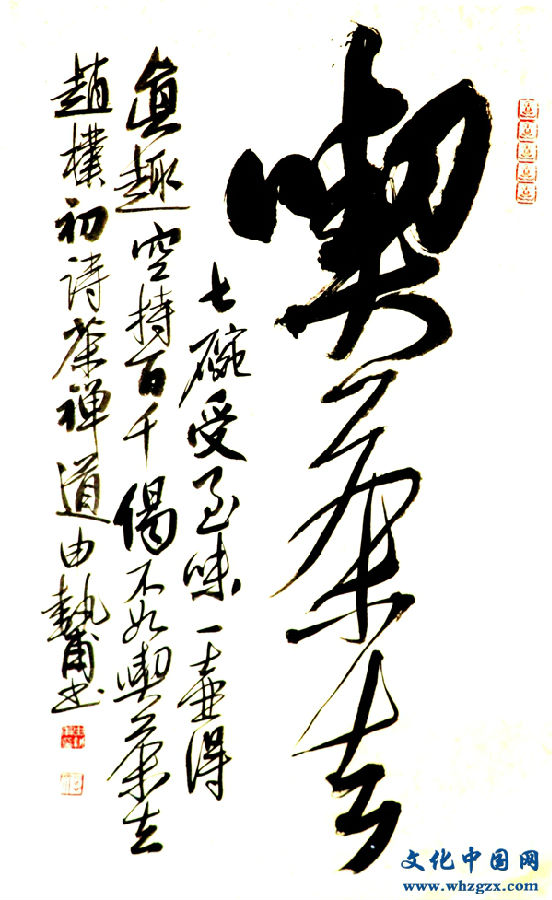 喫茶去
七碗受至味一壺得
真趣空持百千偈不如喫茶去
趙樸初詩茶禪道由
文化中国网
www.whzgzx.com